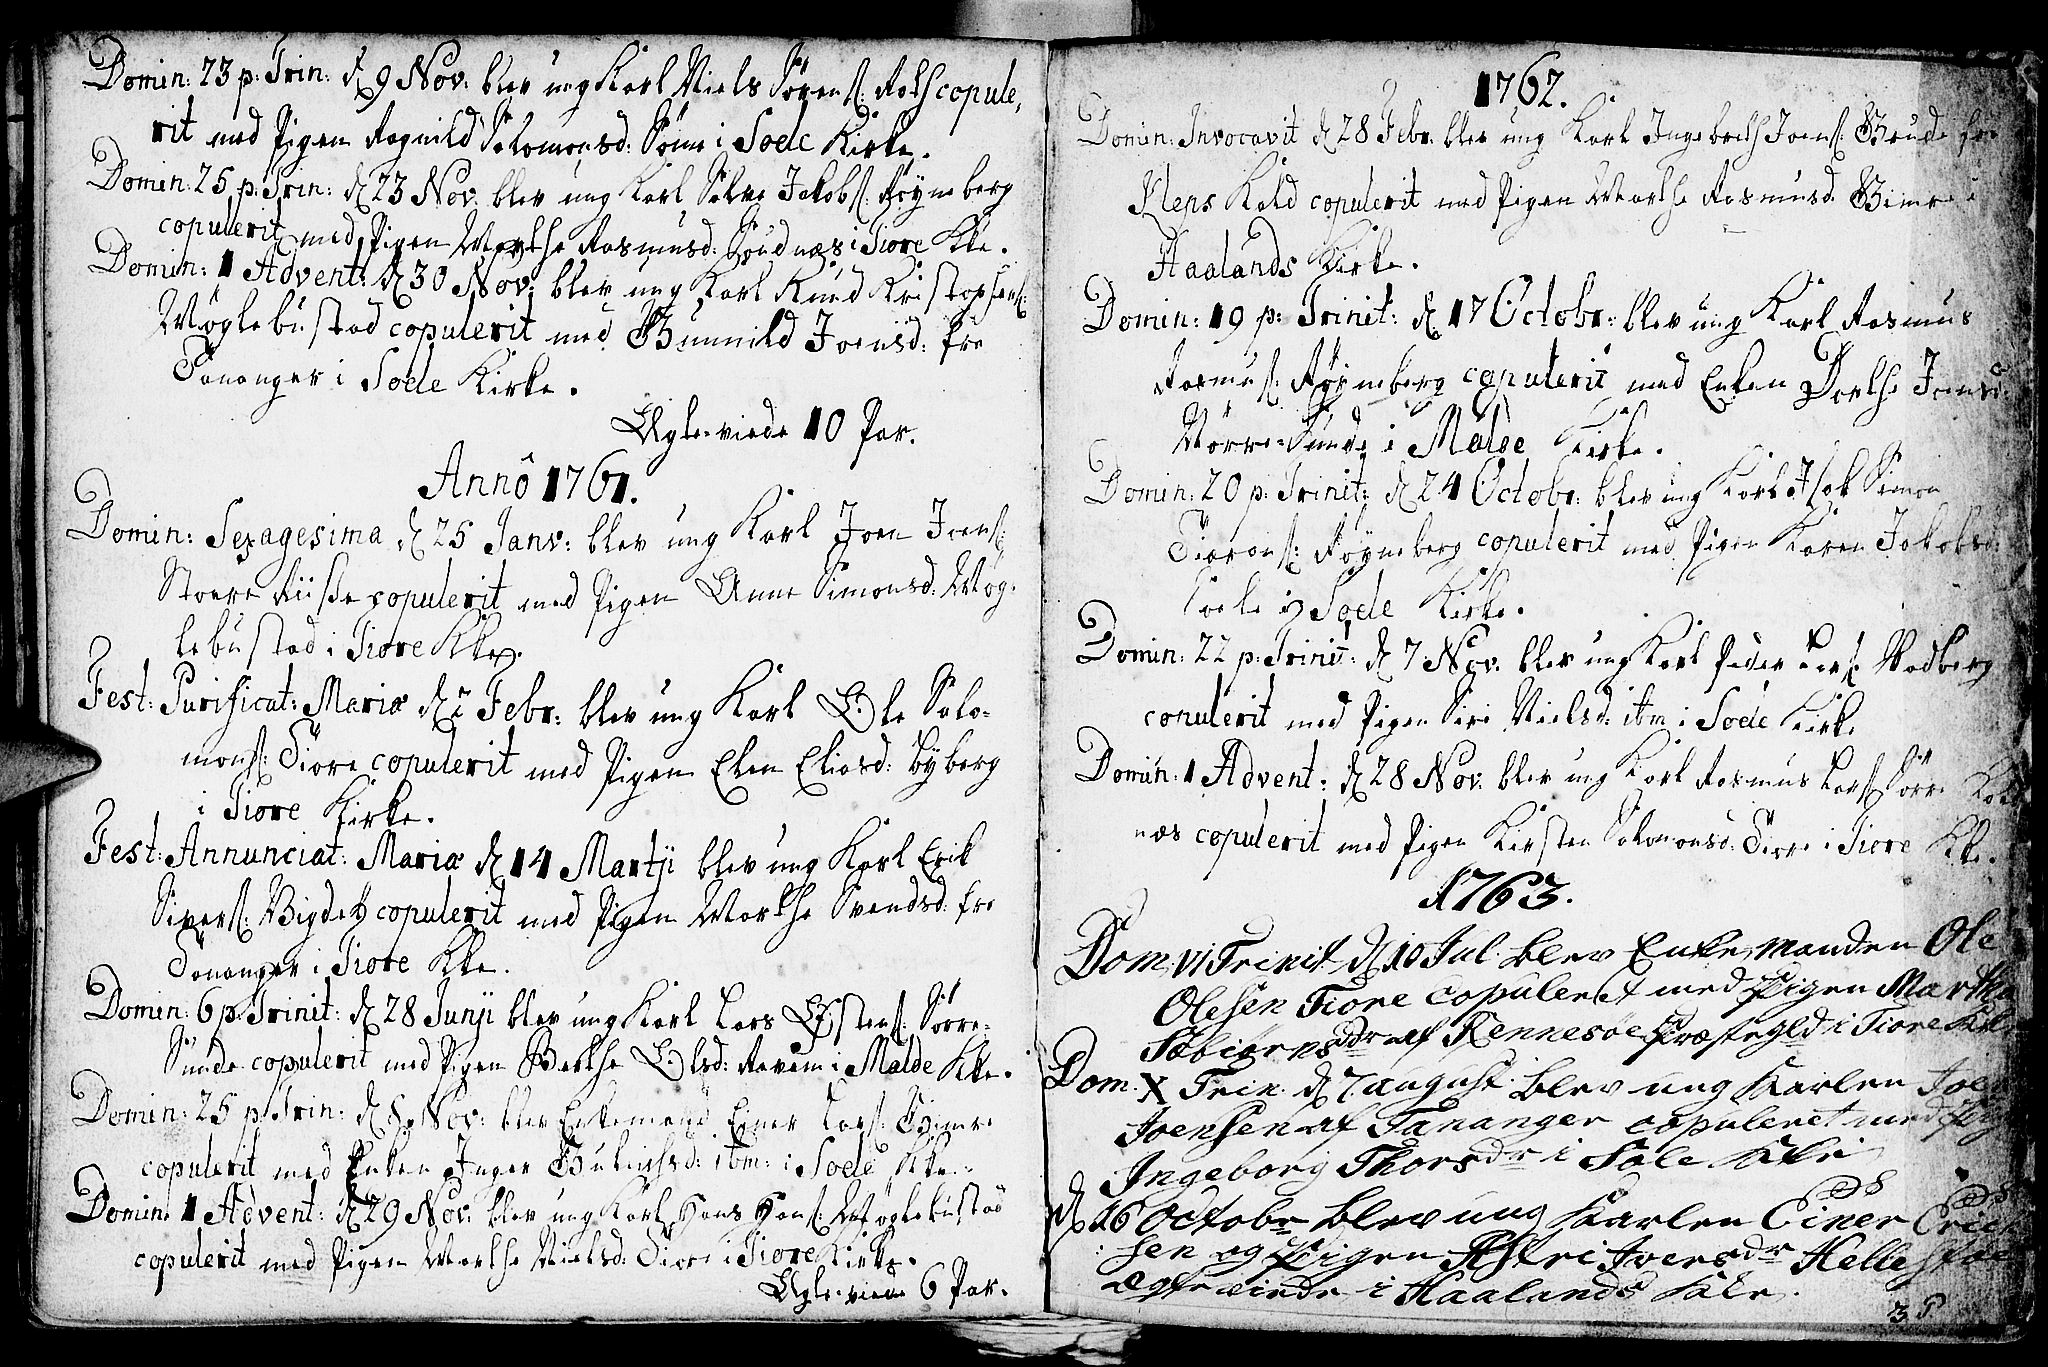 Domin: 23 p: Trin: d 9 Nov: blev ung Karl Niels Sørens: Roth copule,
rit med Pigen Ragnild Salomonsd: Sømi i Soele Kirke.
Domin: 25 p: Trin: d 23 Nov: blev ung Karl Jakobs: Røyneberg
copulerit med Pigen Marthe Rasmusd: i Tiore Kke.
Domin: 1 Advent: d 30 Nov: blev ung Karl Knud Kristophers:
Møglebustad copulerit med Gunnild Joensd: fra
Tananger i Soele Kirke.
Ægte-viede 10 Par.
Annô 1761.
Domin: Sexagesima d 25 Janv: blev ung Karl Joen Joens:
Stoere copulerit med Pigen Anne Simonsd: Møg-
lebustad i Tiore Kke.
Fest: Purificat: Mariæ d 2 Febr: blev ung Karl Ole Salo-
mons: Tiore copulerit med Pigen Elen Eliasd: Byberg
i Tiore Kirke.
Fest: Annunciat: Mariæ d 14 Martji blev ung Karl Erik
Sivers: copulerit med Pigen Marthe Svendsd: fra
Tananger i Tiore Kke.
Domin: 6 p. Trinit: d 28 Junji blev ung Karl Lars Sørre-
Sunde copulerit med Pigen Berthe Olsd: i Malde Kke.
Domin: 25 p: Trin: d 8 Nov: blev Enkemand Einer Lars: Gimre
copulerit med Enken Inger itm: i Soele Kke.
Domin: 1 Advent: d 29 Nov: blev ung Karl Hans Hans: Møglebustad
copulerit med Pigen Marthe Nielsd: Tiore i Tiore Kirke.
Ægte-viede 6 Par.
1762.
Domin: Invocavit d 28 Febr: blev ung Karl Ingebreth Joens: Grude fra
Kleps Kald copulerit med Pigen Marthe Rasmusd: Gimre i
Haalands Kirke.
Domin: 19 p: Trinit: d 17 Octobr: blev ung Karl Rasmus
Rasmus: Røyneberg copulerit med Enken Dorthe Joensd:
Nørre-Sunde i Malde Kirke.
Domin: 20 p: Trinit: d 24 Octobr: blev ung Karl Isak Simon
Røyneberg copulerit med Pigen Karen Jakobsd:
Soele i Soele Kirke.
Domin: 22 p: Trinit: d 7 Nov: blev ung Karl Peder Lars: Madberg
copulerit med Pigen Siri Nielsd: itm i Soele Kirke
Domin: 1 Advent: d 28 Nov: blev ung Karl Rasmus Lars: Sørre
næs copulerit med Pigen Kirsten Salomonsd: Tiore i Tiore Kke.
1763.
Dom: VI Trinit d 10 Jul: blev Enke Manden Ole
Olesen Tiore copuleret med Pigen Martha
af Rennesøe Præstegld i Tiore Kke
Dom. X Trin: d 7 august: blev ung Karlen Joen
Joensen af Tananger copuleret med Pig
Ingeborg Thorsdr i Sole Kke
d 16 Octobr blev ung Karlen Einer Erich
sen og Pigen Astri Iversdr Hellestøe
ægteviede i Haalands Kke.
3 P.